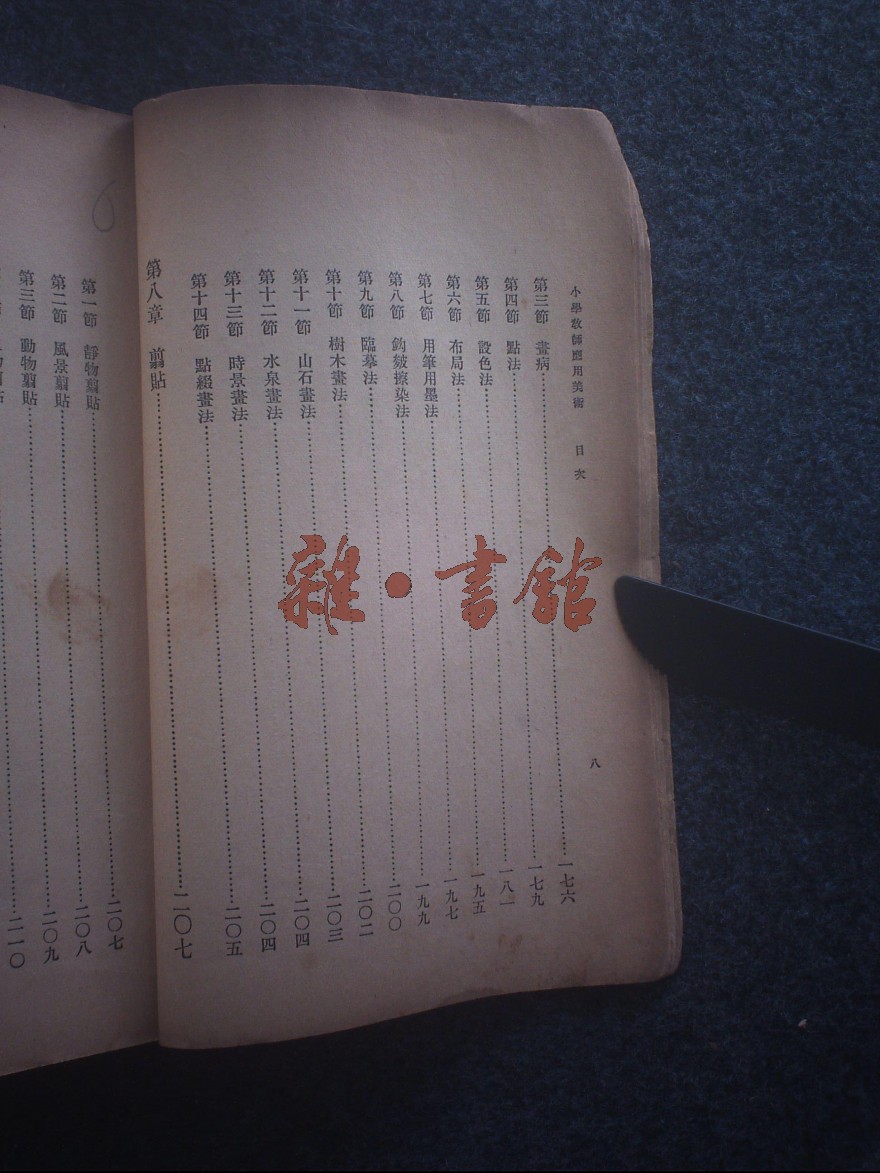 小學教師應用美術 目次 八
第三節 畫病……一七六
第四節 點法……一七九
第五節 設色法……一八一
第六節 布局法……一九五
第七節 用筆用墨法……一九七
第八節 鈎皴擦染法……一九九
第九節 臨摹法……二〇〇
第十節 樹木畫法……二〇二
第十一節 山石畫法……二〇三
第十二節 水泉畫法……二〇四
第十三節 時景畫法……二〇四
第十四節 點綴畫法……二〇五
第八章 翦貼……二〇七
第一節 靜物翦貼……二〇七
第二節 風景翦貼……二〇八
第三節 動物翦貼……二〇九
二一〇
雜·書館